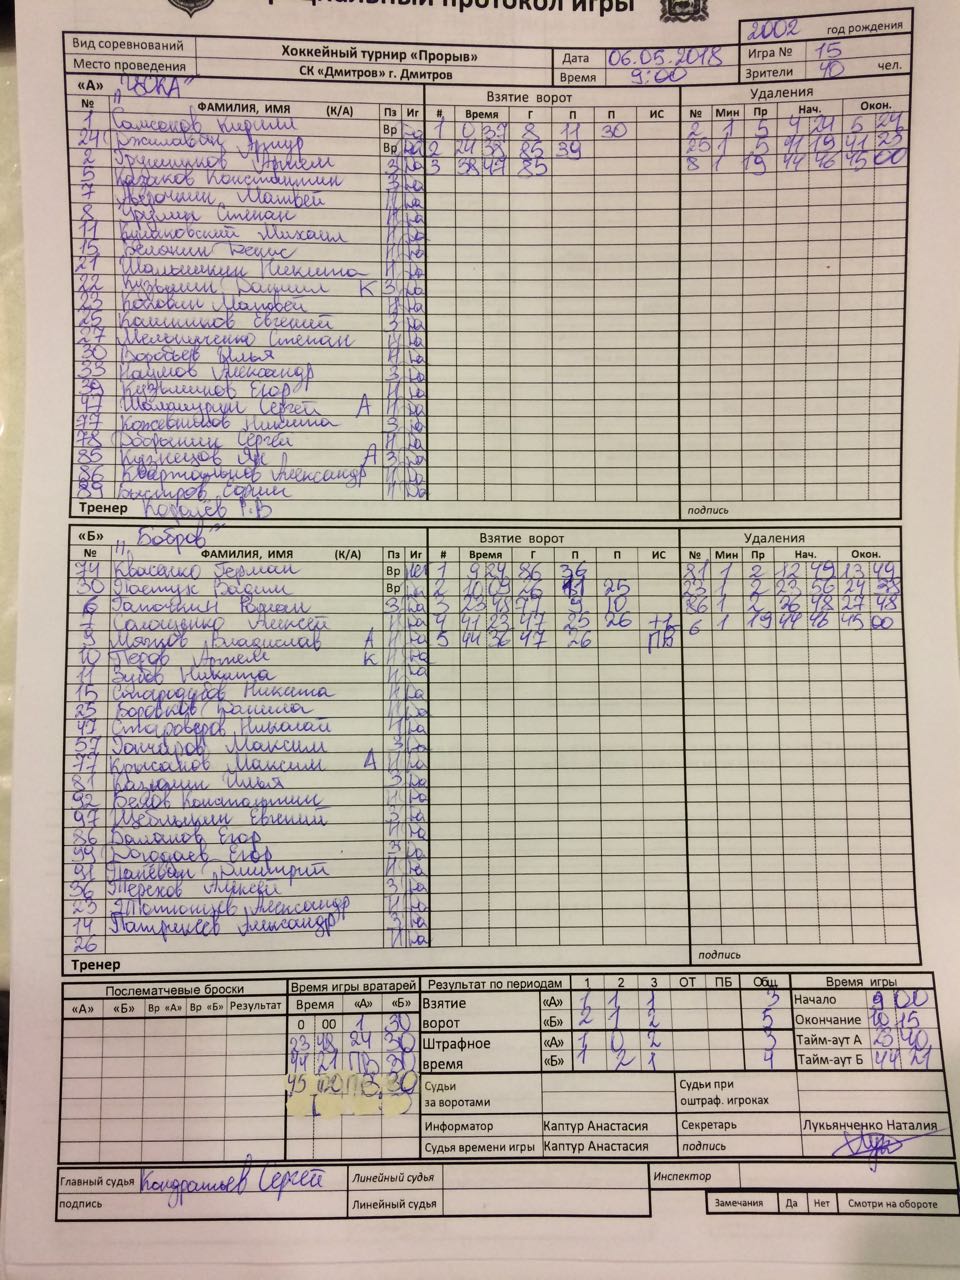 альный протокол игры
2002 год рождения
Вид соревнований Хоккейный турнир «Прорыв» Дата 06.05.2018 Игра № 15
Место проведения СК «Дмитров» г. Дмитров Время 9:00 Зрители 40 чел.
«А» "ЦСКА" Взятие ворот Удаления
№ ФАМИЛИЯ, ИМЯ (К/А) Пз Иг # Время Г П П ИС № Мин Пр Нач. Окон.
1 Самсонов Кирилл Вр 1 0 37 8 11 30 2 1 5 4 24 5 24
24 Артур Вр Да 2 24 38 25 39 25 1 5 41 19 41 23
2 Артем З Да 3 38 47 85 8 1 19 44 46 45 00
5 Казаков Константин З Да
7 Аверочкин Матвей Н Да
8 Степан Н Да
11 Михаил Н Да
15 Белянин Денис Н Да
21 Шалышкин Никита Н Да
22 Кузьмин Даниил К З Да
23 Матвей Н Да
25 Калинников Евгений З Да
27 Мельниченко Степан Н Да
30 Воробьев Илья Н Да
33 Наумов Александр З Да
39 Кузьминов Егор Н Да
47 Шаламурин Сергей А Н Да
77 Кожевников Никита З Да
78 Добрынин Сергей Н Да
85 Кузнецов Ян А З Да
86 Квартальнов Александр Н Да
89 Быстров Н Да
Тренер Королёв подпись
«Б» "Бобров" Взятие ворот Удаления
№ ФАМИЛИЯ, ИМЯ (К/А) Пз Иг # Время Г П П ИС № Мин Пр Нач. Окон.
74 Квасенко Герман Вр Нет 1 9 24 86 36 81 1 2 12 49 13 49
30 Пастух Вадим Вр Да 2 10 09 25 23 1 2 23 56 24 38
6 Гапочкин Родион З Да 3 23 48 97 9 10 86 1 2 26 48 27 48
7 Солощенко Алексей Н Да 4 41 23 47 25 26 +1 6 1 19 44 46 45 00
9 Мягков Владислав А Н Да 5 44 36 47 26 ПВ
10 Перов Артем К Н Да
11 Зубов Никита Н Да
15 Стародубов Никита Н Да
25 Боровков Данила Н Да
47 Староверов Николай Н Да
57 Гончаров Максим З Да
77 Крысанов Максим А Н Да
81 Илья З Да
92 Белов Константин Н Да
97 Щеблыкин Евгений З Да
86 Егор Н Да
99 Егор З Да
91 Дмитрий Н Да
36 Терехов Алексей З Да
23 Александр Н Да
14 Патрикеев Александр З Да
26 Н Да
Тренер подпись
Послематчевые броски Время игры вратарей Результат по периодам 1 2 3 ОТ ПБ Общ. Время игры
«А» «Б» Вр «А» Вр «Б» Результат Время «А» «Б» Взятие ворот «А» 1 1 1 3 Начало 9 00
0 00 1 30 «Б» 2 1 2 5 Окончание 10 15
23 48 24 30 Штрафное время «А» 1 0 2 3 Тайм-аут А 23 40
44 21 ПВ 30 «Б» 1 2 1 4 Тайм-аут Б 44 21
45 00 ПВ 30 Судьи за воротами Судьи при оштраф. игроках
Информатор Каптур Анастасия Секретарь Лукьянченко Наталия
Судья времени игры Каптур Анастасия подпись
Главный судья Кондратьев Сергей Линейный судья Инспектор
подпись Линейный судья Замечания Да Нет Смотри на обороте